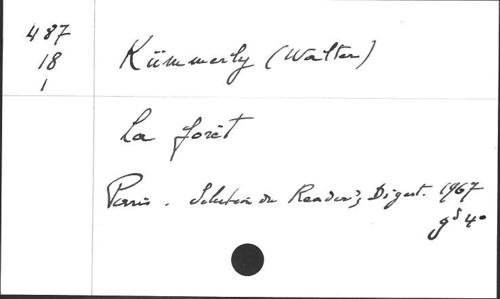 487
18
1
Kümmerly (Walter)
La forêt
Paris. Sélection du Reader's Digest. 1967
gd 4°